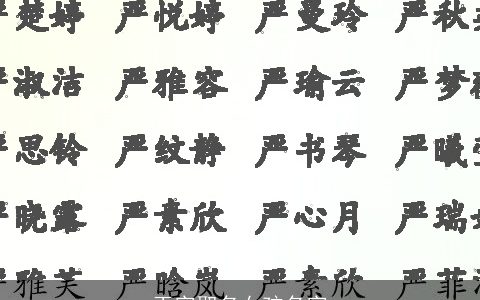 严楚婷 严悦婷 严曼玲 严秋
严淑洁 严雅容 严瑜云 严梦
严思铃 严纹静 严书琴 严曦
严晓露 严素欣 严心月 严瑞
严雅芙 严晗岚 严素欣 严菲